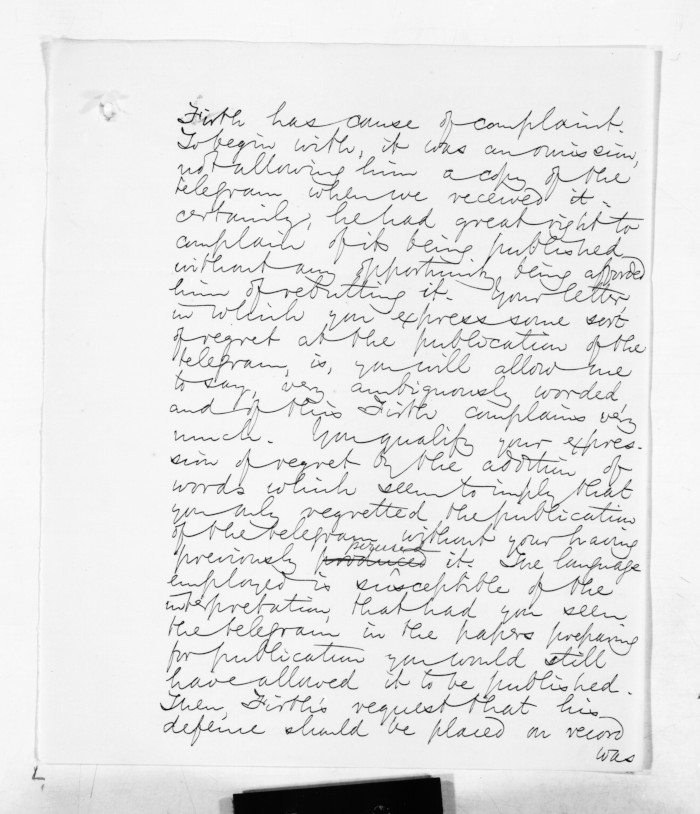 Firth has cause of complaint.
To begin with, it was an omission,
not allowing him a copy of the
telegram when we received it.
certainly, he had great right to
complain of its being published
without any opportunity being afforded
him of rebutting it. Your letter,
in which you express some sort
of regret at the publication of the
telegram, is, you will allow me
to say, very ambiguously worded
and of this Firth complains very
much. You qualify your expres-
sion of regret by the addition of
words which seem to imply that
you only regretted the publication
of the telegram without your having
previously produced perused it. The language
employed is susceptible of the
interpretation, that had you seen
the telegram in the papers preparing
for publication you would still
have allowed it to be published.
Then, Firth's request that his
defense should be placed on record
was